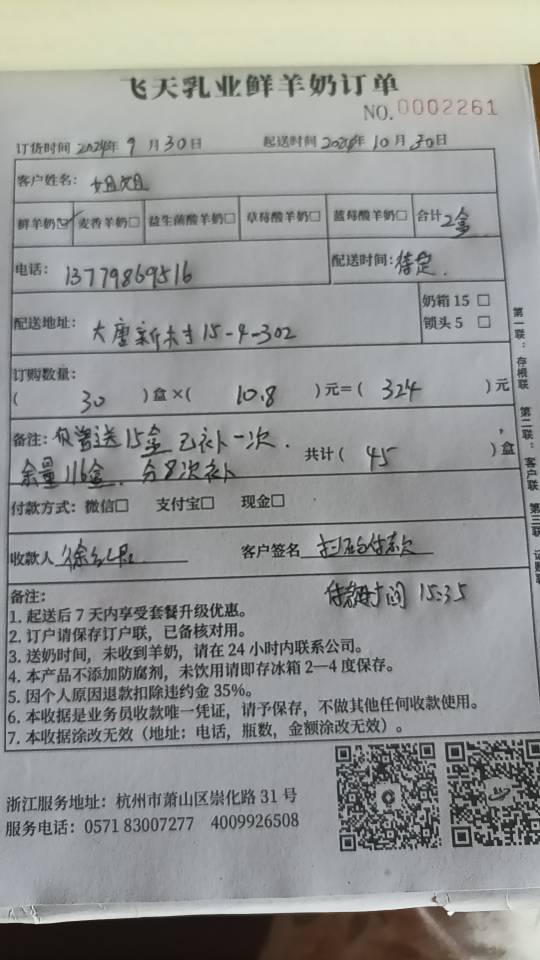 飞天乳业鲜羊奶订单
NO.0002261
订货时间 2024年 9 月 30 日 起送时间 2024年 10 月 30 日
客户姓名：
鲜羊奶☑ 麦香羊奶□ 益生菌酸羊奶□ 草莓酸羊奶□ 蓝莓酸羊奶□ 合计 2盒
电话： 13779869516 配送时间：待定.
配送地址： 大唐新未来15-4-302
奶箱 15 □
锁头 5 □
订购数量：
( 30 ) 盒 × ( 10.8 ) 元 = ( 324 ) 元
备注： 送15盒 已补一次.
余量116盒. 分8次补 共计 ( 45 ) 盒
付款方式：微信□ 支付宝□ 现金□
收款人 徐 客户签名 付款
备注： 时间 15:35
1. 起送后 7 天内享受套餐升级优惠。
2. 订户请保存订户联，已备核对用。
3. 送奶时间，未收到羊奶，请在 24 小时内联系公司。
4. 本产品不添加防腐剂，未饮用请即存冰箱 2—4 度保存。
5. 因个人原因退款扣除违约金 35%。
6. 本收据是业务员收款唯一凭证，请予保存，不做其他任何收款使用。
7. 本收据涂改无效（地址：电话，瓶数，金额涂改无效）。
浙江服务地址：杭州市萧山区崇化路 31 号
服务电话：0571 83007277 4009926508
第一联：存根联 第二联：客户联 第三联